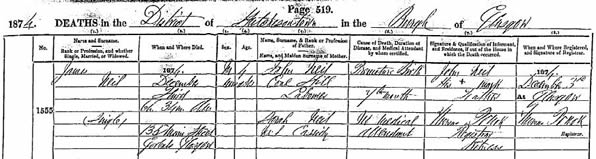 Page 519.
1874. DEATHS in the District of Hutchesontown in the Burgh of Glasgow
(1.) (2.) (3.) (4.) (5.) (6.) (7.) (8.)
No. Name and Surname. Rank or Profession, and whether Single, Married, or Widowed.
When and Where Died.
Sex.
Age.
Name, Surname, & Rank or Profession of Father. Name, and Maiden Surname of Mother.
Cause of Death, Duration of Disease, and Medical Attendant by whom certified.
Signature & Qualification of Informant, and Residence, if out of the House in which the Death occurred.
When and where Registered, and Signature of Registrar.
1555
James Neil
(Single)
1874
December
Third
3h 30m
Main Street
Gorbals Glasgow
M
John Neil
Coal
Labourer
Sarah Neil
Cassidy
Premature Birth
7th month
No medical
attendant
John Neil
his + mark
Father
Registrar
Witness
1874
December 3rd
At Glasgow
Registrar.